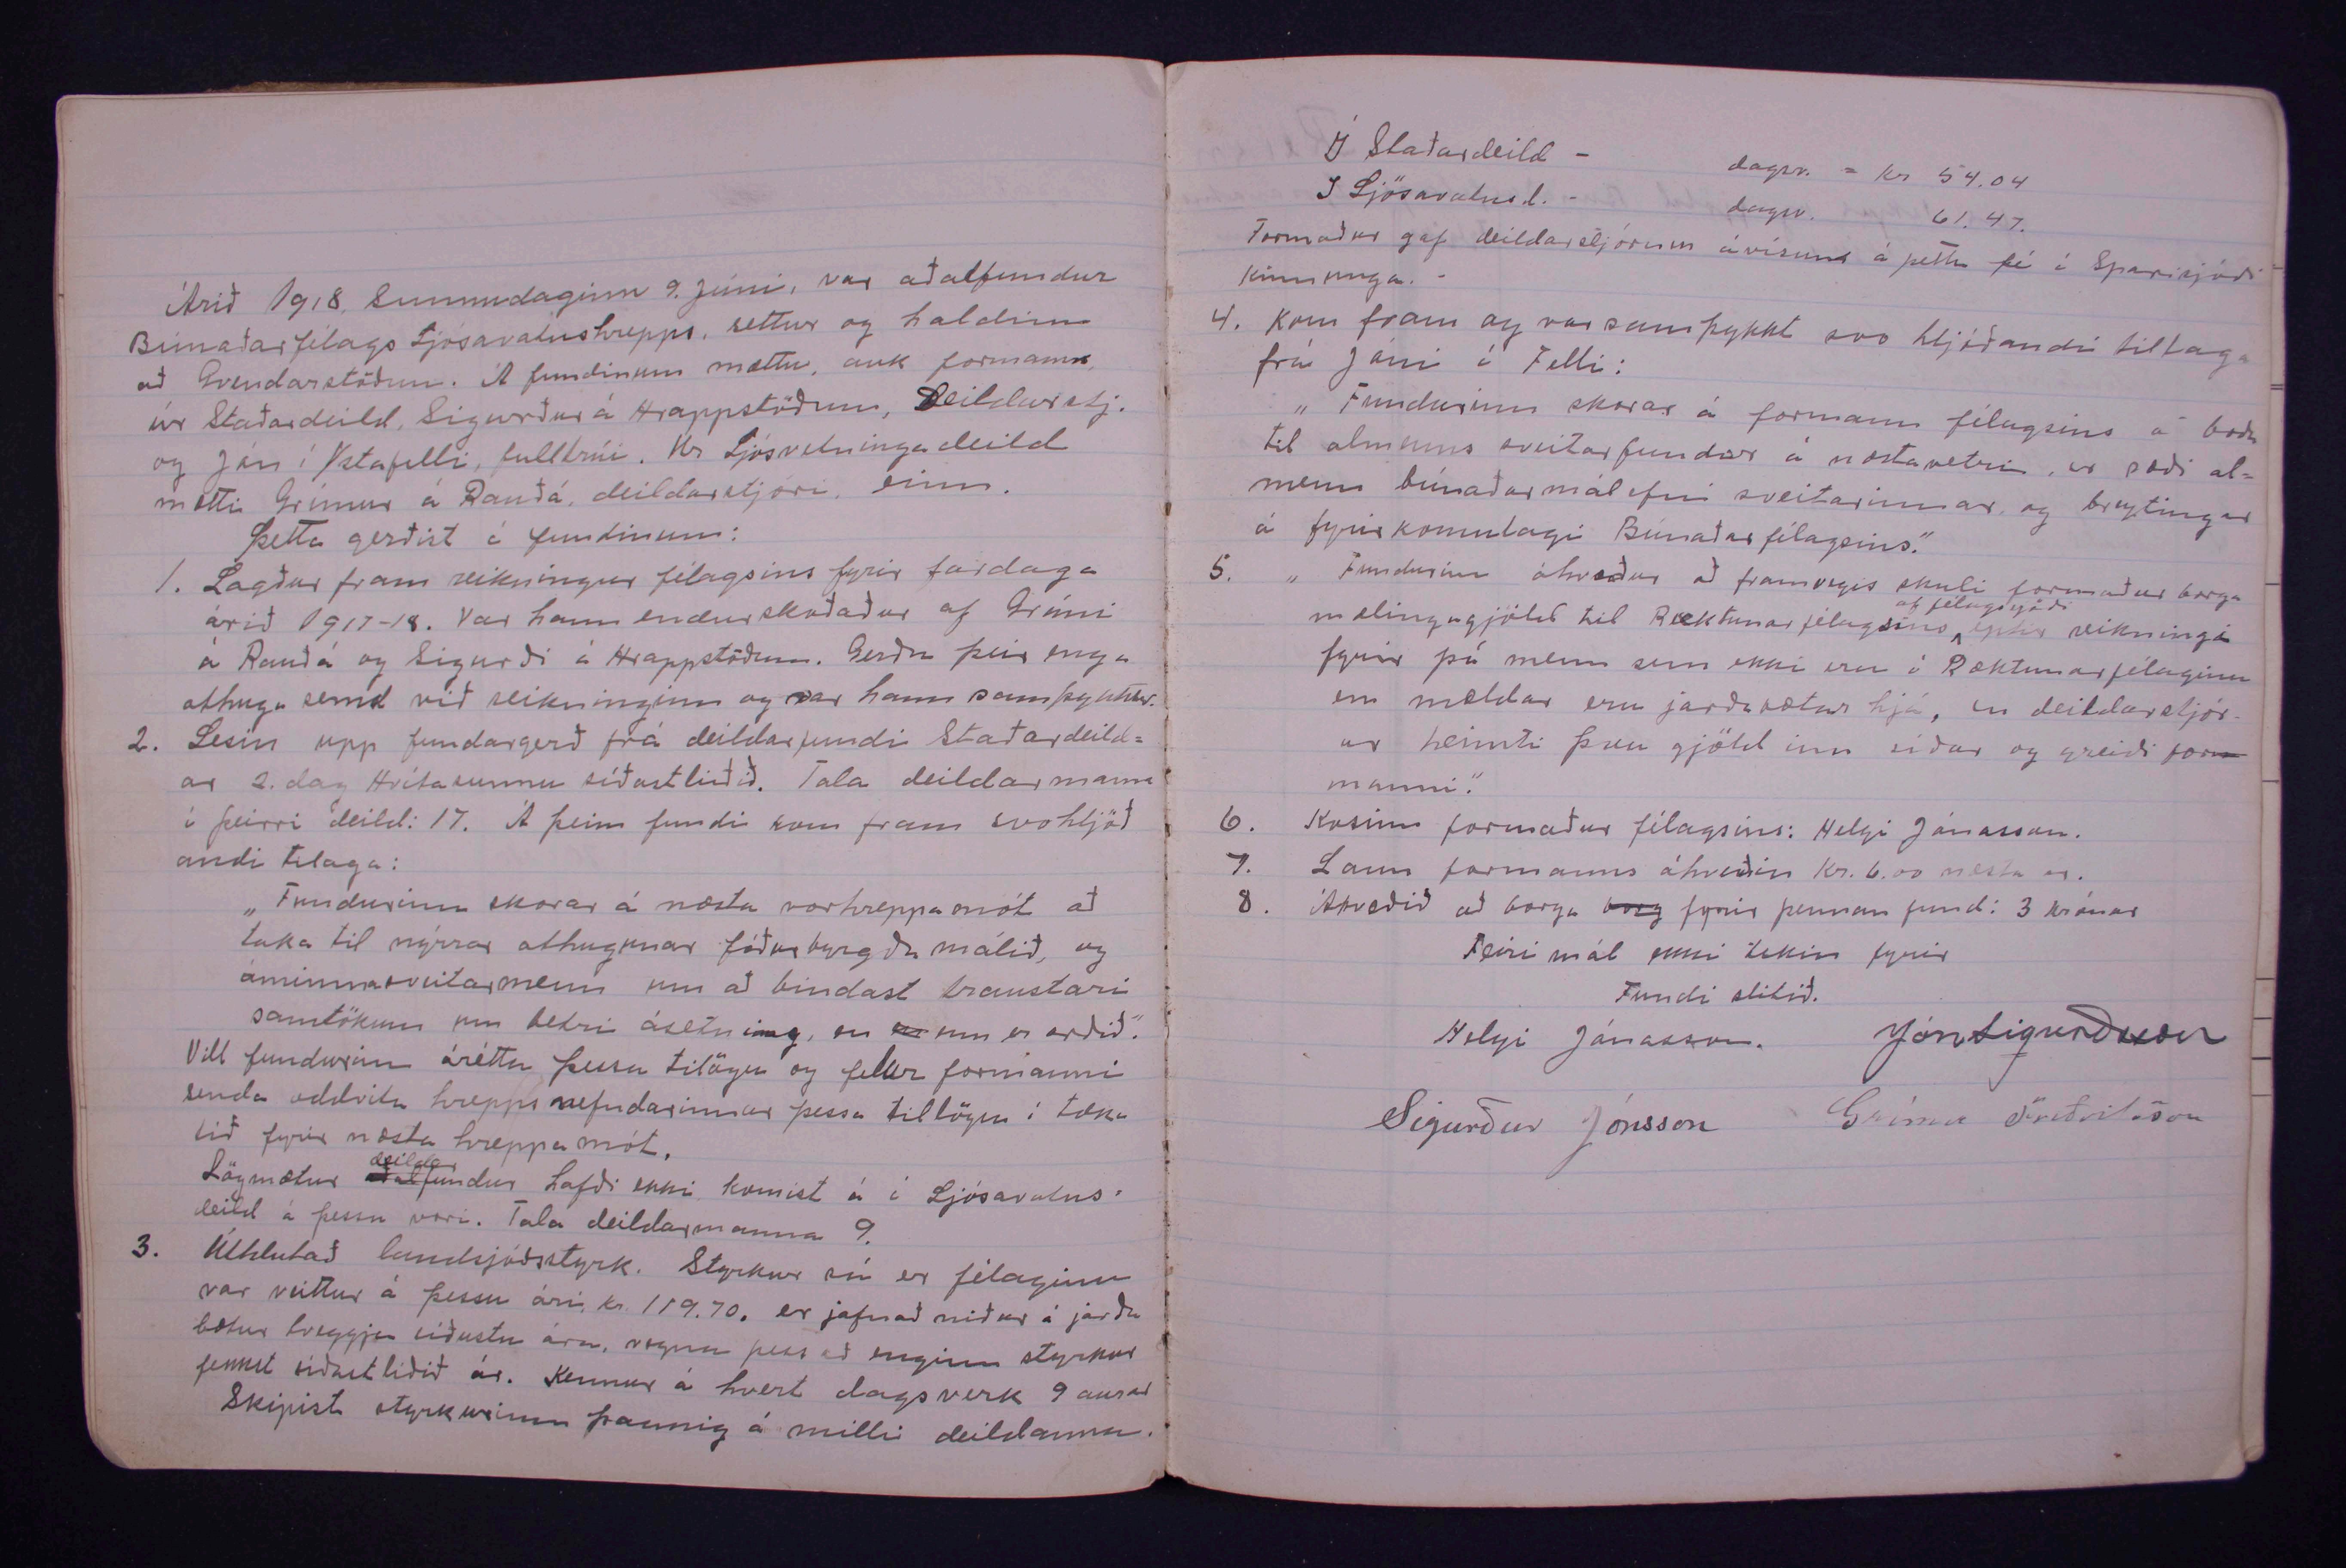 Árið 1918, Sunnudaginn 9. Júní, var aðalfundur
Búnaðarfélags Ljósavatnshrepps, settur og haldinn
að Gvendarstöðum. Á fundinum mættu, auk formanns,
úr Staðardeild, Sigurður á Hrappstöðum, Deildarstj.
og Jón í Ystafelli, fulltrúi. Úr Ljósvetningadeild
mætti Grímur á Rauðá, deildarstjóri, einn.
Þetta gerðist á fundinum:
1. Lagður fram reikningur félagsins fyrir fardaga
árið 1917-18. Var hann endurskoðaður af Grími
á Rauðá og Sigurði á Hrappstöðum. Gerðu þeir enga
athugasemd við reikninginn og var hann samþykktur.
2. Lesin upp fundargerð frá deildarfundi Staðardeild=
ar 2. dag Hvítasunnu síðastliðið. Tala deildarmanna
í þeirri deild: 17. Á þeim fundi kom fram svohljóð
andi tilaga:
„Fundurinn skorar á næsta vorhreppamót að
taka til nýrrar athugunar fóðurbyrgðamálið, og
áminna sveitarmenn um að bindast traustari
samtökum um betri ásetning, en enn er orðið“.
Vill fundurinn árétta þessa tilögu og felur formanni
senda oddvita hreppsnefndarinnar þessa tillögu í tæka
tíð fyrir næsta hreppamót.
Lögmætur aðalfundur deildar hafði ekki komist á í Ljósavatns-
deild á þessu vori. Tala deildarmanna 9.
3. Úthlutað landsjóðsstyrk. Styrkur sá er félaginu
var veittur á þessu ári, kr. 119.70. er jafnað niður á jarða
bætur tveggja síðustu ára, vegna þess að enginn styrkur
fekkst síðastliðið ár. Kemur á hvert dagsverk 9 aurar
Skipist styrkurinn þannig á milli deildanna.
Í Staðardeild - dagsv. = kr 54.04
Í Ljósavatnsd. - dagsv. 61.47.
Formaður gaf deildarstjórum ávísun á þetta fé í Sparisjóði
Kinnunga. -
4. Kom fram og var samþykkt svo hljóðandi tillaga
frá Jóni í Felli:
„Fundurinn skorar á formann félagsins á boða
til almenns sveitarfundar á næsta vetri, er ræði al=
menn búnaðarmálefni sveitarinnar, og breytingar
á fyrirkomulagi Búnaðarfélagsins.“
5. „Fundurinn ákveður að framvegis skuli formaður borga
mælingagjöld til Ræktunarfélagsins af félagssjóði eptir reikningi
fyrir þá menn sem ekki eru í Ræktunarfélaginu
en mældar eru jarðabætur hjá, en deildarstjór-
ar heimti þau gjöld inn síðar og greiði for-
manni“.
6. Kosinn formaður félagsins: Helgi Jónasson.
7. Laun formanns ákveðin Kr. 6.00 næsta ár.
8. Ákveðið að borga borg fyrir þennan fund: 3 krónur
Fleiri mál ekki tekin fyrir
Fundi slitið.
Helgi Jónasson. Jón Sigurðsson
Sigurður Jónsson Grímur Friðriksson